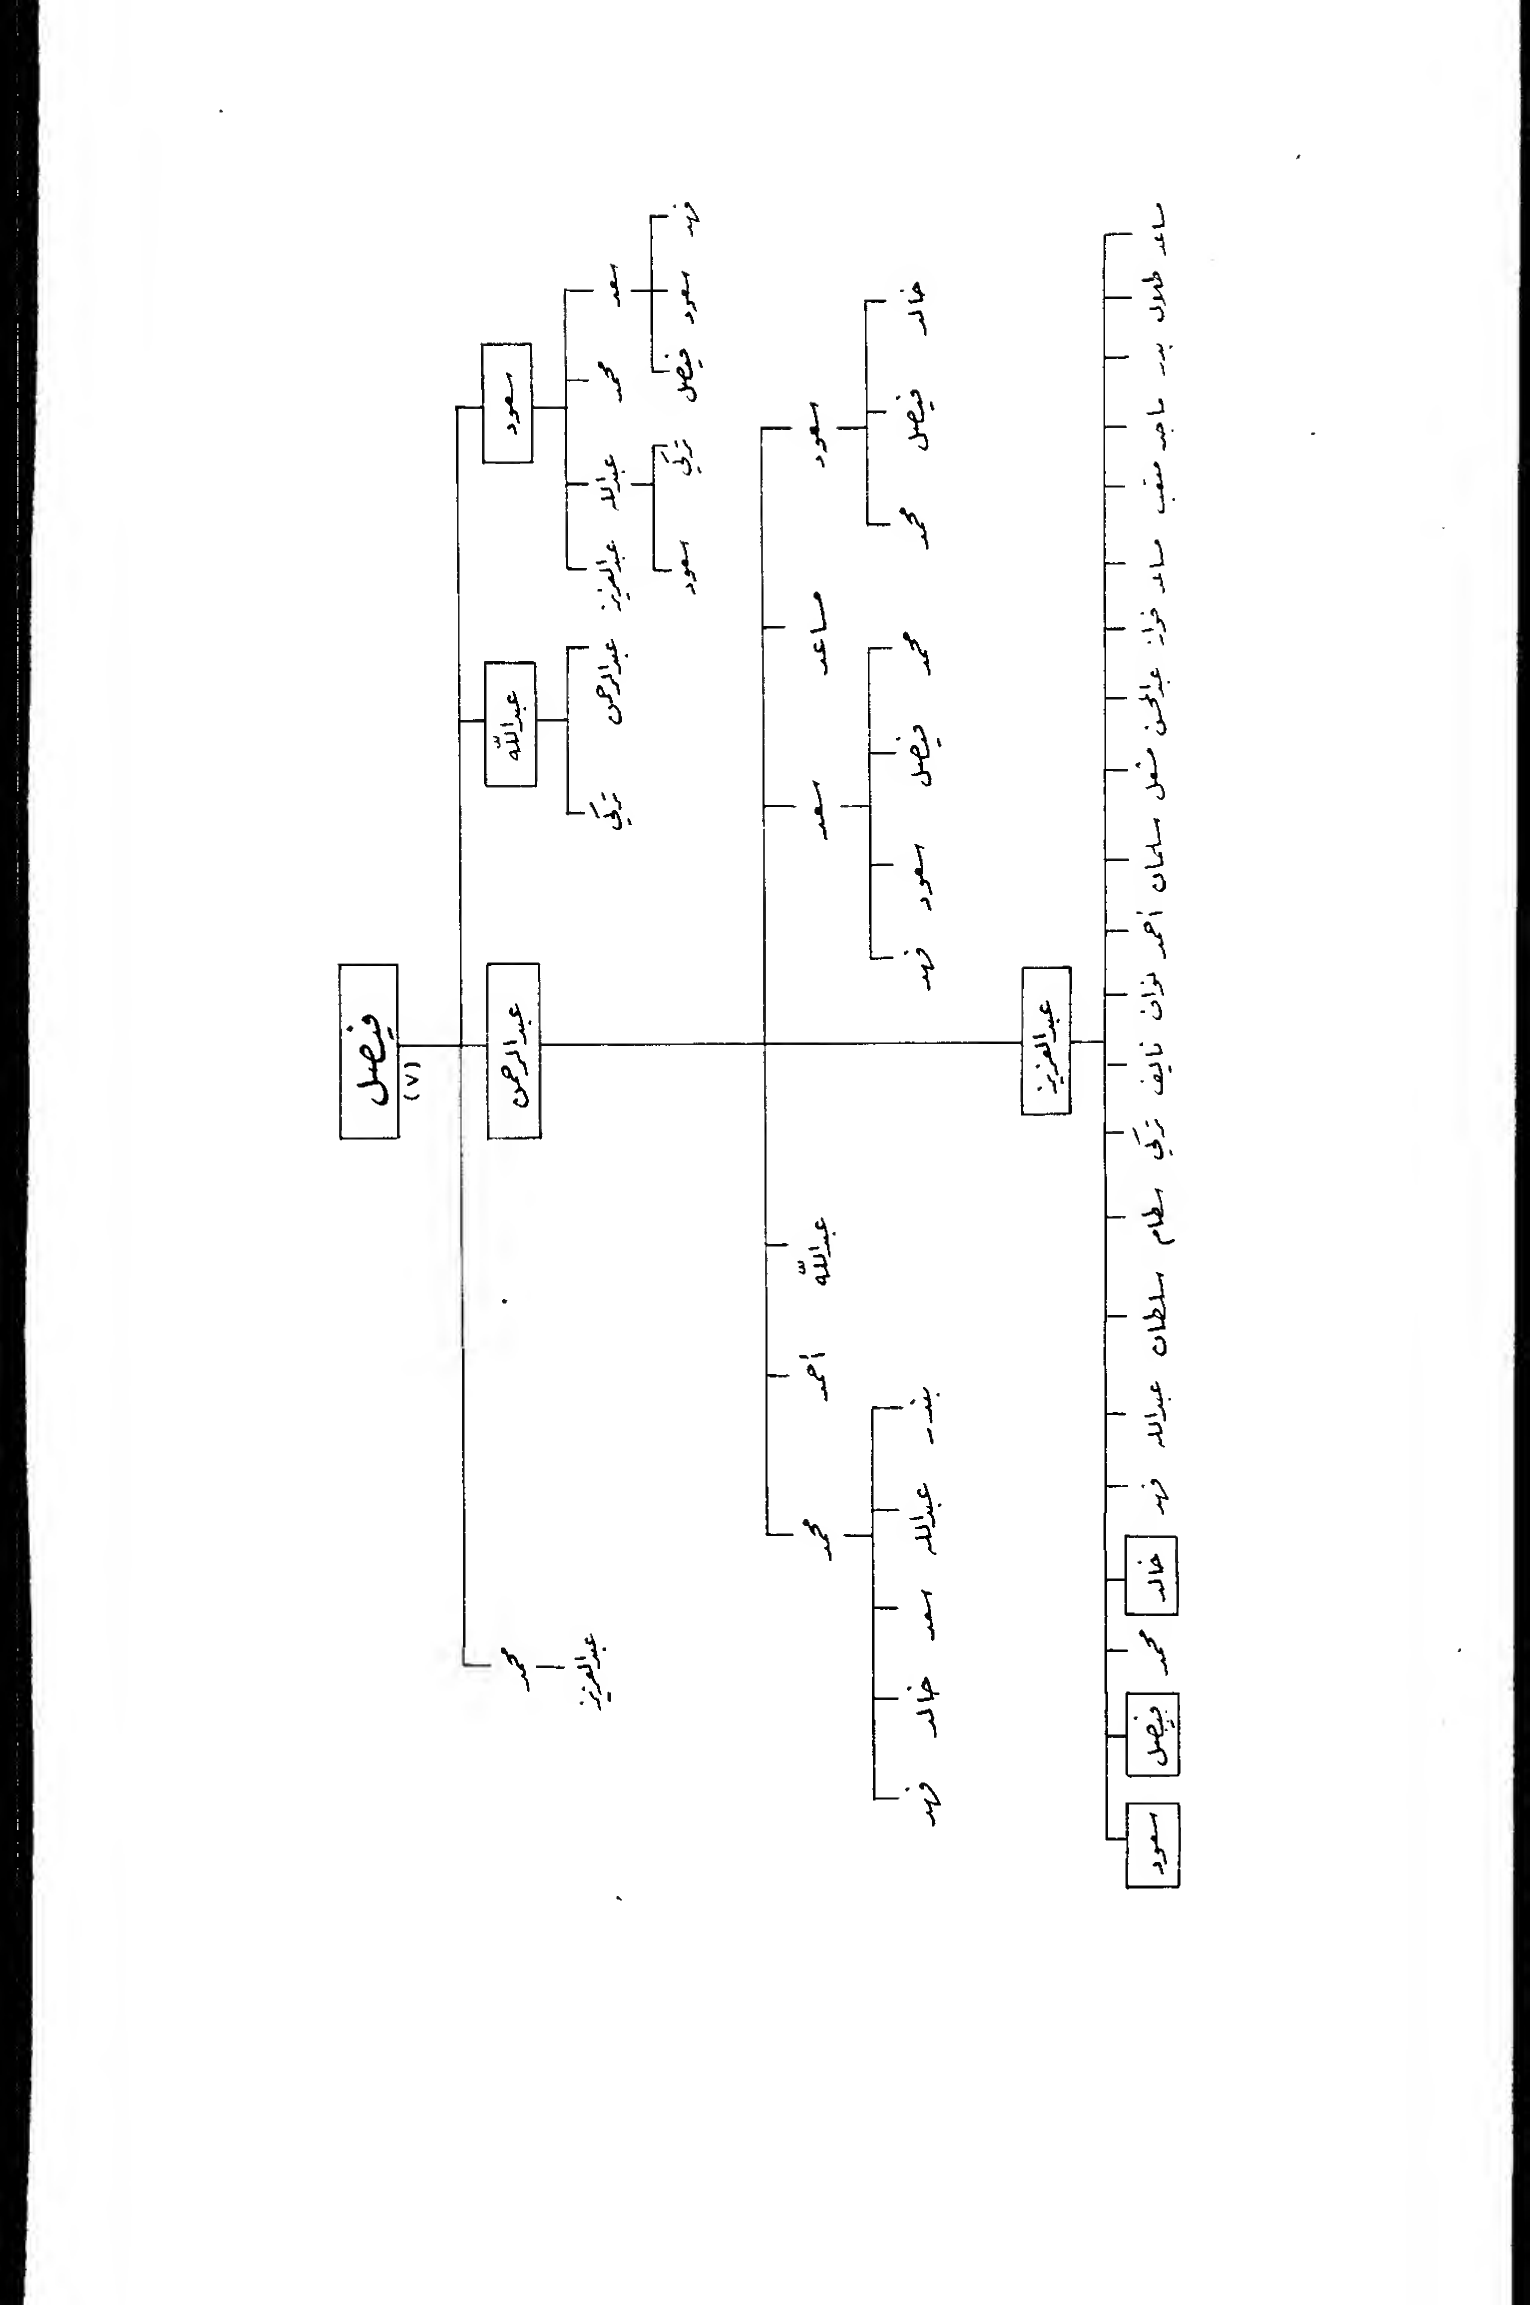 فيصل
(٧)
سعود عبداللّه عبدالرحمن محمد
سعد محمد عبدالله عبدالعزيز عبدالرحمن تركي عبدالعزيز
فهد سعود فيصل تركي سعود
سعود مساعد سعد عبداللّه أحمد محمد
خالد فيصل محمد محمد فيصل سعود فهد بندر عبدالله سعد خالد فهد
عبدالعزيز
مساعد طلال بدر ماجد متعب مساعد فواز عبدالمحسن مشعل سلمان أحمد نواف نايف تركي سطام سلطان عبدالله فهد خالد محمد فيصل سعود